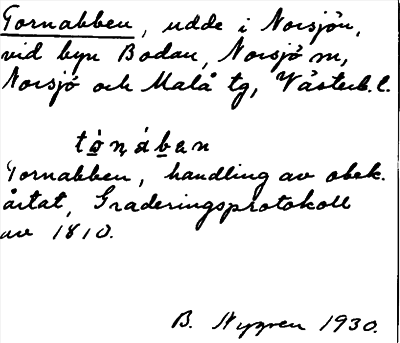 Tornabben, udde i Norsjön,
vid byn Bodan, Norsjö sn,
Norsjö och Malå tg, Västerb. l.
tó̲ṇába̲n
Tornabben, handling av obek.
årtal, Graderingsprotokoll
av 1810.
B. Nygren 1930.